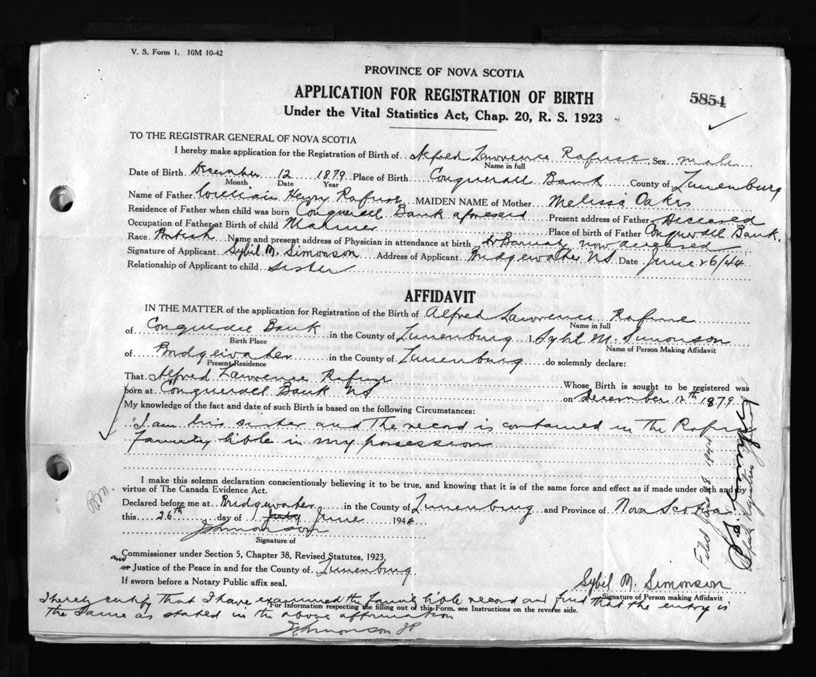 V. S. Form 1. 10M 10-42
PROVINCE OF NOVA SCOTIA
APPLICATION FOR REGISTRATION OF BIRTH
5854
Under the Vital Statistics Act, Chap. 20, R. S. 1923
TO THE REGISTRAR GENERAL OF NOVA SCOTIA
I hereby make application for the Registration of Birth of Alfred Lawrence Rafuse Sex male
Name in full
Date of Birth December 12 1879 Place of Birth Conquerall Bank County of Lunenburg
Month Date Year
Name of Father William Henry Rafuse MAIDEN NAME of Mother Melissa Oakes
Residence of Father when child was born Conquerall Bank aforesaid Present address of Father Deceased
Occupation of Father at Birth of child Mariner Place of birth of Father Conquerall Bank.
Race British Name and present address of Physician in attendance at birth Dr Barnaby now deceased
Signature of Applicant Sybil M. Simonson Address of Applicant Bridgewater NS Date June 26/44
Relationship of Applicant to child Sister
AFFIDAVIT
IN THE MATTER of the application for Registration of the Birth of Alfred Lawrence Rafuse
Name in full
of Conquerall Bank in the County of Lunenburg I, Sybil M. Simonson
Birth Place Name of Person Making Affidavit
of Bridgewater in the County of Lunenburg do solemnly declare:
Present Residence
That Alfred Lawrence Rafuse Whose Birth is sought to be registered was
born at Conquerall Bank NS on December 12th 1879
My knowledge of the fact and date of such Birth is based on the following Circumstances:
I am his sister and the record is contained in the Rafuse
Family bible in my possession
I make this solemn declaration conscientiously believing it to be true, and knowing that it is of the same force and effect as if made under oath and by
virtue of The Canada Evidence Act.
Declared before me at Bridgewater in the County of Lunenburg and Province of Nova Scotia
this 26th day of July June 1944
Signature of
Commissioner under Section 5, Chapter 38, Revised Statutes, 1923,
or Justice of the Peace in and for the County of Lunenburg
If sworn before a Notary Public affix seal.
Sybil M. Simonson
Signature of Person making Affidavit
I hereby certify that I have examined the family bible record and find that the entry is
For Information respecting the filling out of this Form, see Instructions on the reverse side.
the same as stated in the above affirmation
JP
Filed 1944